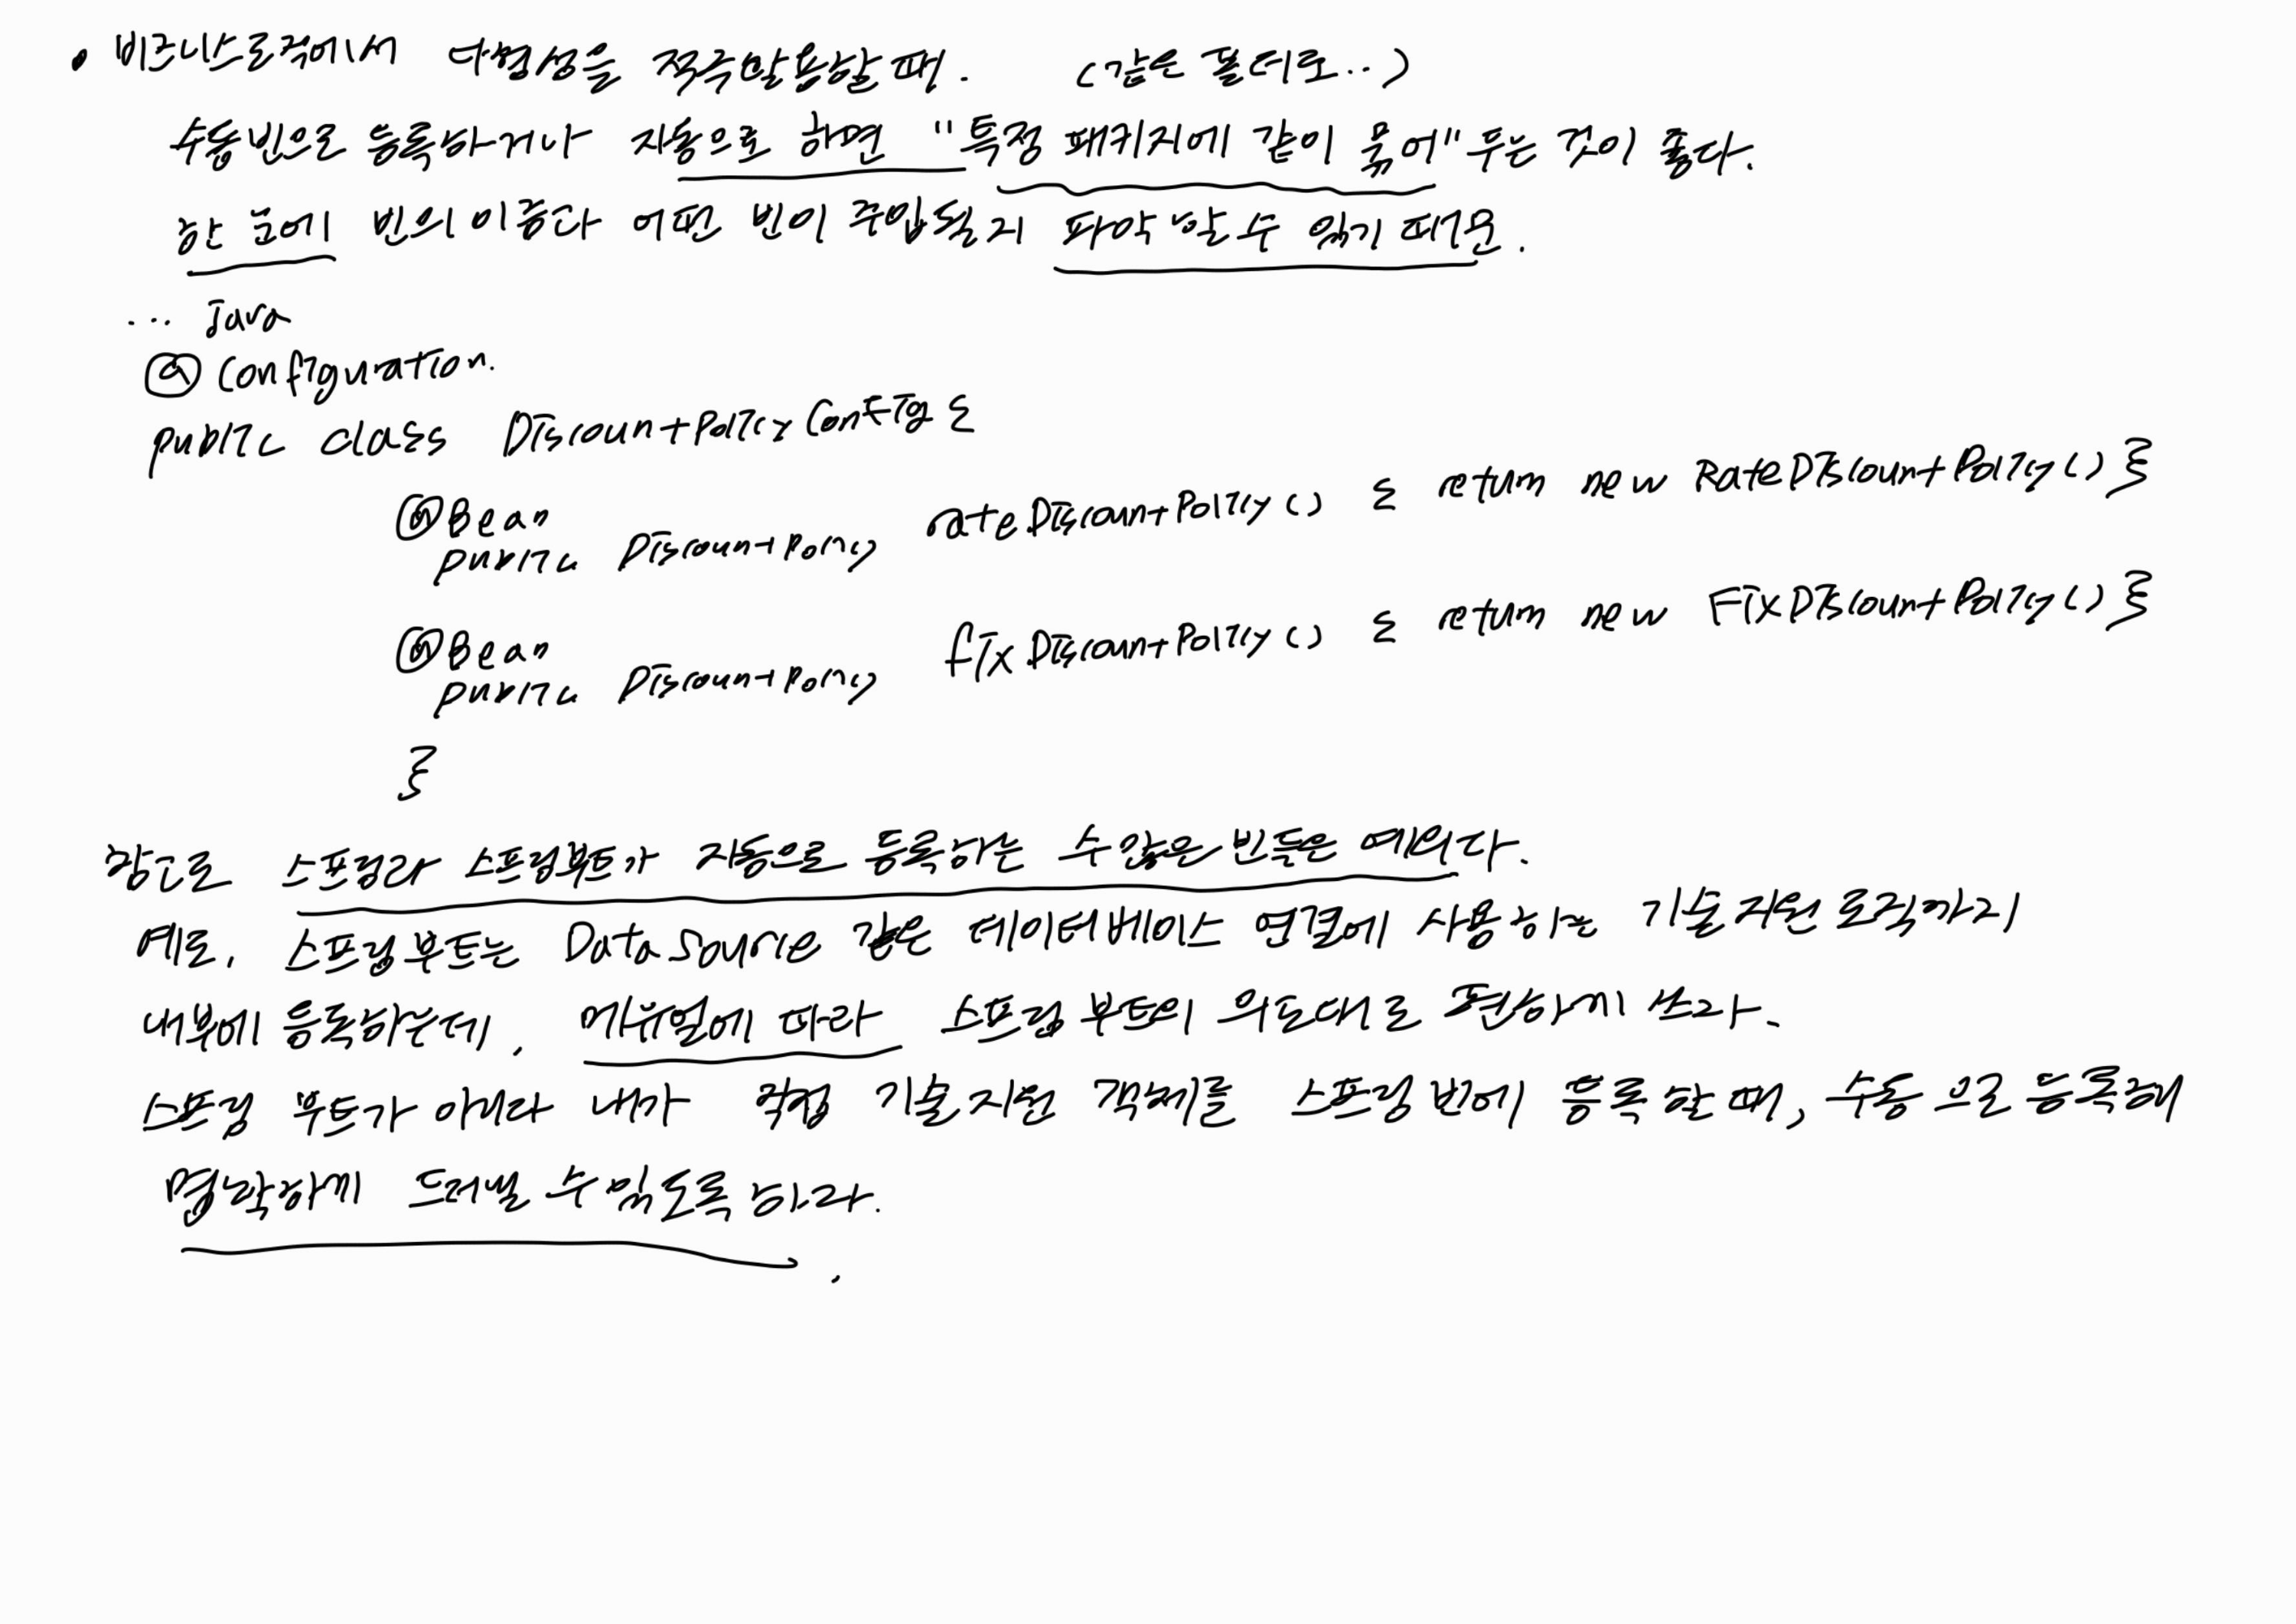 • 비즈니스로직에서 다형성을 적극활용할 때. (같은 폴더로..)
수동 빈으로 등록하거나 자동으로 하면 "특정 패키지에 같이 묶어" 두는 것이 좋다.
한 눈에 빈의 이름과 어떤 빈이 주입될지 파악 할 수 있기 때문.
... java
@Configuration.
public class DiscountPolicyConfig {
@Bean
public DiscountPolicy rateDiscountPolicy() { return new RateDiscountPolicy() }
@Bean
public DiscountPolicy fixDiscountPolicy() { return new FixDiscountPolicy() }
}
참고로 스프링과 스프링부트가 자동으로 등록하는 수많은 빈들은 예외다.
예로, 스프링 부트는 DataSource 같은 데이터베이스 연결에 사용하는 기술 지원 로직까지
내부에 등록하는데, 메뉴얼에 따라 스프링 부트의 의도대로 편하게 쓰라.
스프링 부트가 아니라 내가 직접 기술 지원 객체를 스프링 빈에 등록 할 때, 수동 으로 등록해
명확하게 드러낼 수 있도록 하라.